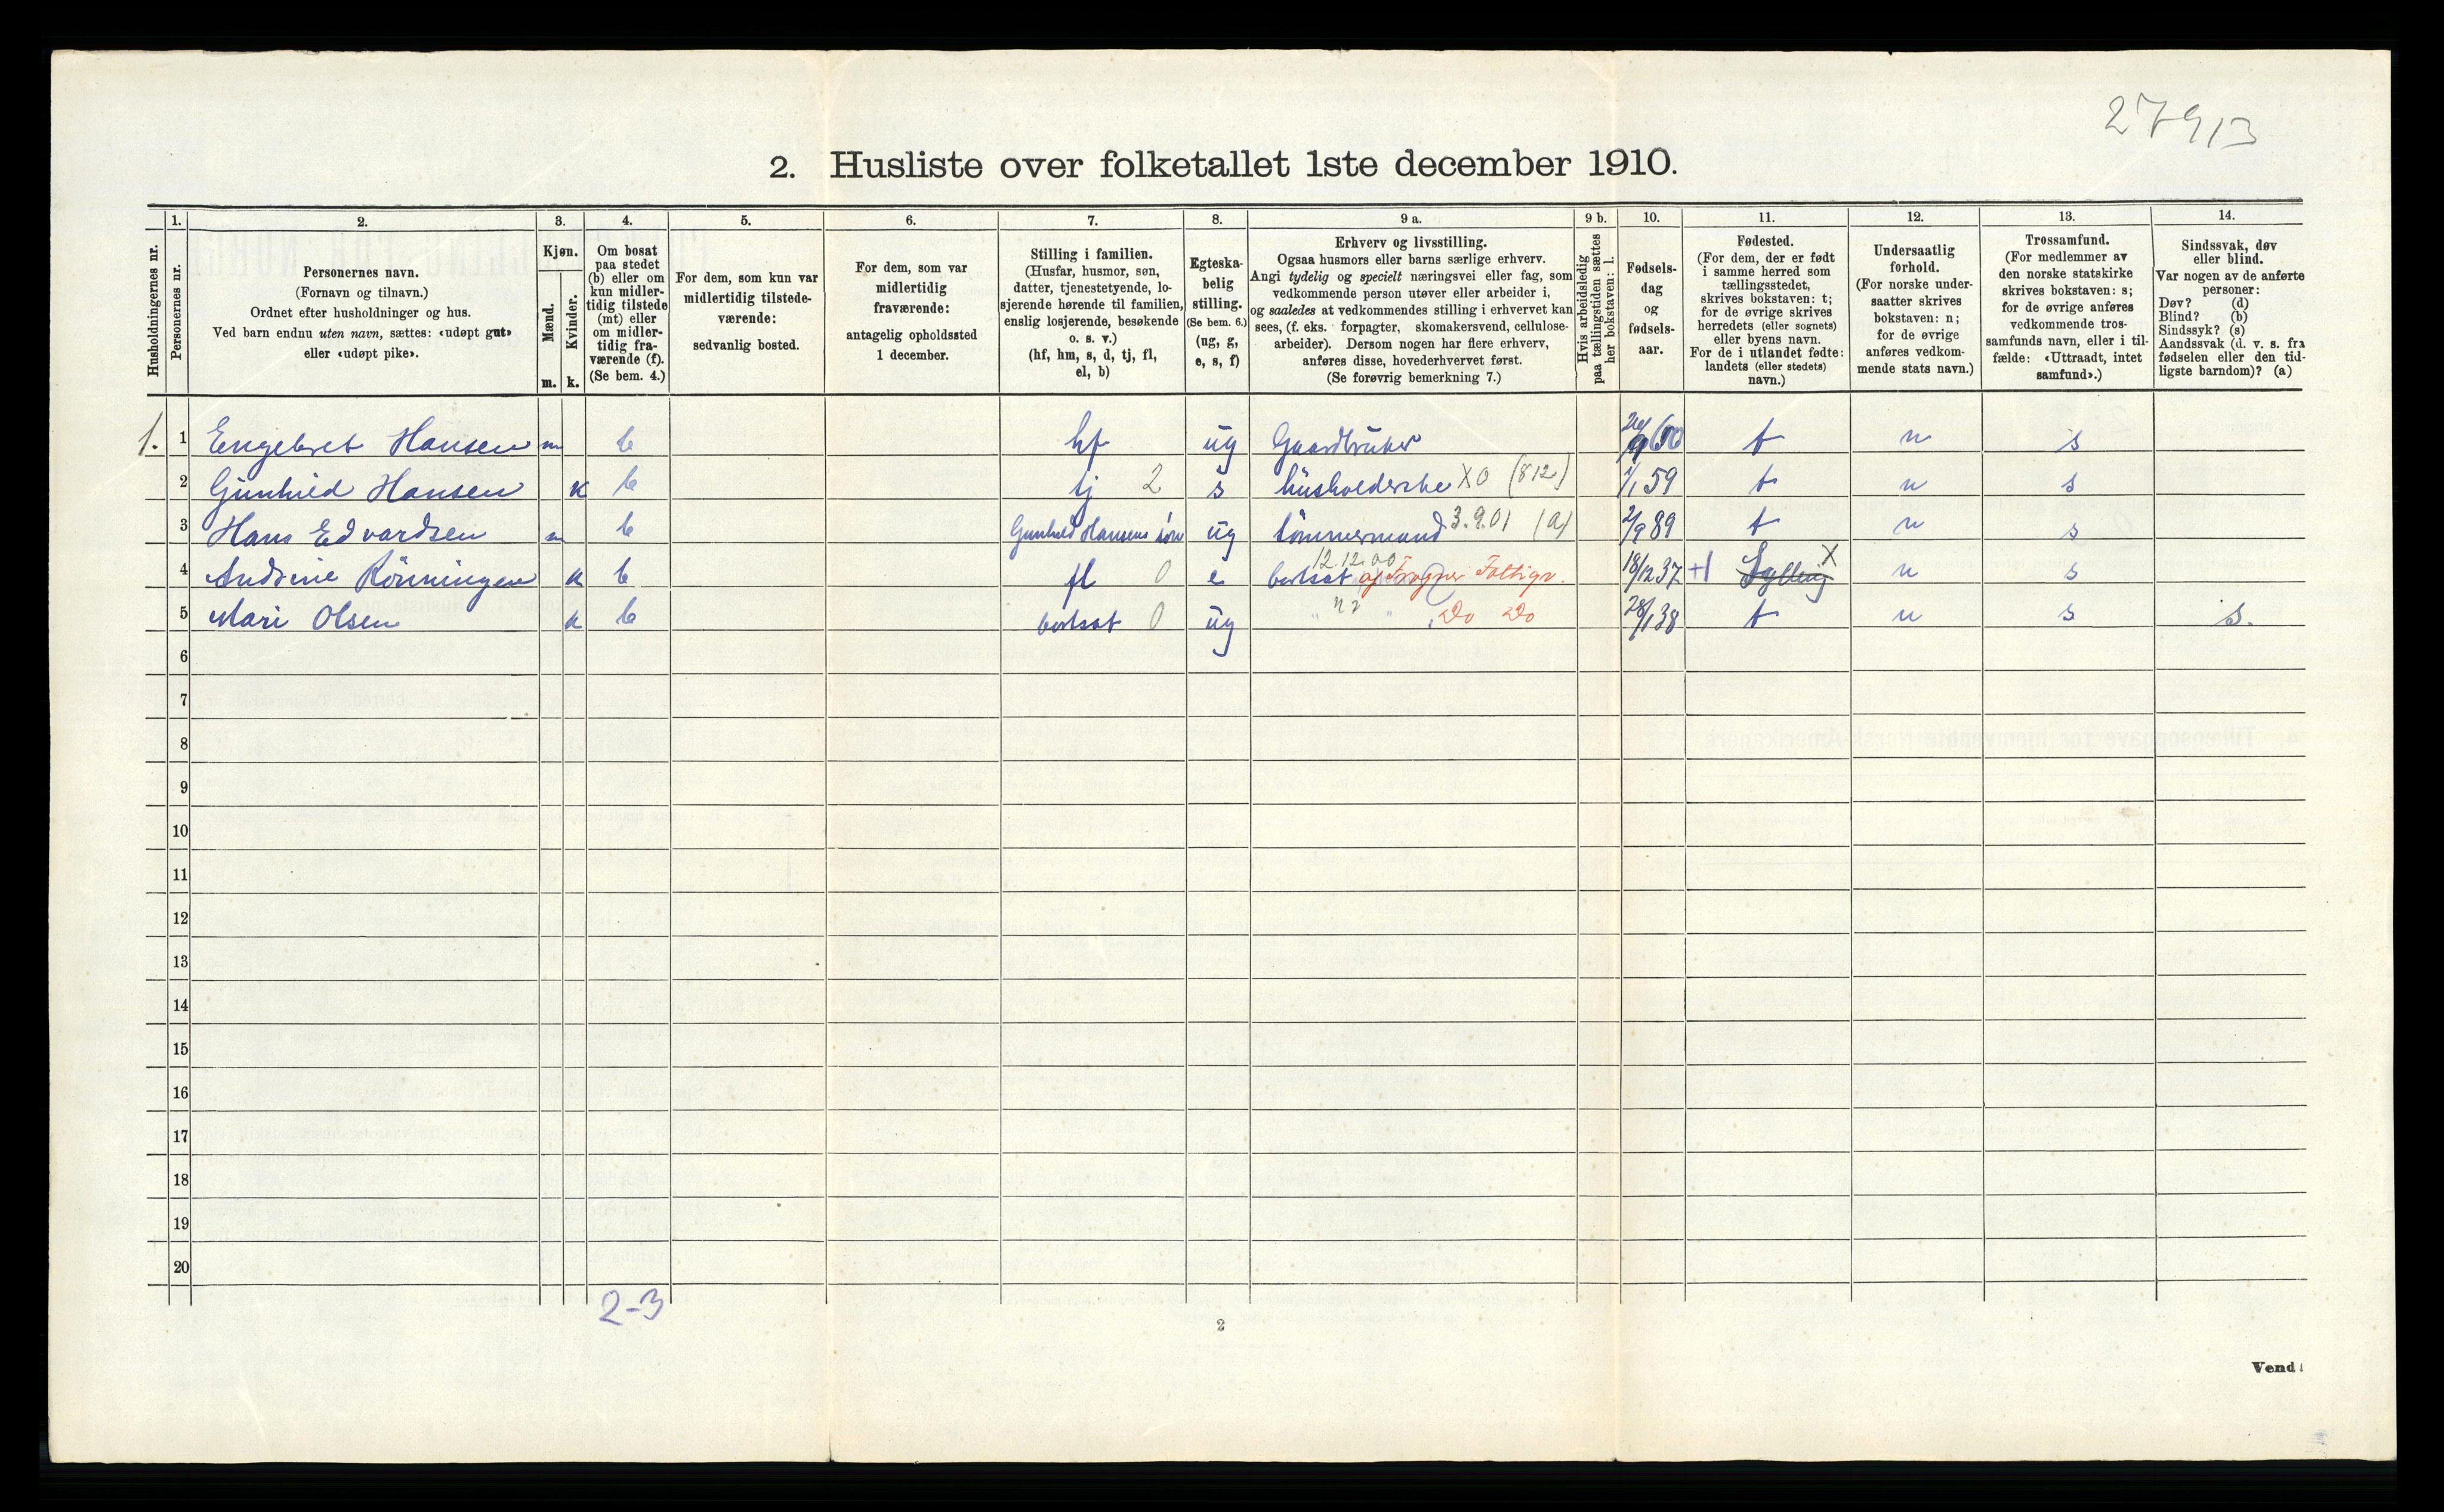 27913
2. Husliste over folketallet 1ste december 1910.
Husholdningernes nr.
1.
Personernes nr.
2.
Personernes navn.
(Fornavn og tilnavn.)
Ordnet efter husholdninger og hus.
Ved barn endnu uten navn, sættes: «udøpt gut»
eller «udøpt pike».
3.
Kjøn.
Mænd.
Kvinder.
m. k.
4.
Om bosat
paa stedet
(b) eller om
kun midler-
tidig tilstede
(mt) eller
om midler-
tidig fra-
værende (f).
(Se bem. 4.)
5.
For dem, som kun var
midlertidig tilstede-
værende:
sedvanlig bosted.
6.
For dem, som var
midlertidig
fraværende:
antagelig opholdssted
1 december.
7.
Stilling i familien.
(Husfar, husmor, søn,
datter, tjenestetyende, lo-
sjerende hørende til familien,
enslig losjerende, besøkende
o. s. v.)
(hf, hm, s, d, tj, fl,
el, b)
8.
Egteska-
belig
stilling.
(Se bem. 6.)
(ug, g,
e, s, f)
9 a.
Erhverv og livsstilling.
Ogsaa husmors eller barns særlige erhverv.
Angi tydelig og specielt næringsvei eller fag, som
vedkommende person utøver eller arbeider i,
og saaledes at vedkommendes stilling i erhvervet kan
sees, (f. eks. forpagter, skomakersvend, cellulose-
arbeider). Dersom nogen har flere erhverv,
anføres disse, hovederhvervet først.
(Se forøvrig bemerkning 7.)
9 b.
Hvis arbeidsledig
paa tællingstiden sættes
her bokstaven: l.
10.
Fødsels-
dag
og
fødsels-
aar.
11.
Fødested.
(For dem, der er født
i samme herred som
tællingsstedet,
skrives bokstaven: t;
for de øvrige skrives
herredets (eller sognets)
eller byens navn.
For de i utlandet fødte:
landets (eller stedets)
navn.)
12.
Undersaatlig
forhold.
(For norske under-
saatter skrives
bokstaven: n;
for de øvrige
anføres vedkom-
mende stats navn.)
13.
Trossamfund.
(For medlemmer av
den norske statskirke
skrives bokstaven: s;
for de øvrige anføres
vedkommende tros-
samfunds navn, eller i til-
fælde: «Uttraadt, intet
samfund».)
14.
Sindssvak, døv
eller blind.
Var nogen av de anførte
personer:
Døv? (d)
Blind? (b)
Sindssyk? (s)
Aandssvak (d. v. s. fra
fødselen eller den tid-
ligste barndom)? (a)
1. 1 Engebret Hansen m b hf ug Gaardbruker 60 t n s
2 Gunhild Hansen k b tj 2 s husholderske XO (812) 1/1 59 t n s
3 Hans Edvardsen m b Gunhild Hansens søn ug tømmermand 3.9.01 (a) 2/9 89 t n s
4 Andrine Rönningen k b fl 0 e bortsat 12.12.00 af Frogner Fattigv. 18/12 37 +1 Sylling X n s
5 Mari Olsen k b bortsat 0 ug " " Do Do 28/1 38 t n s s.
6
7
8
9
10
11
12
13
14
15
16
17
18
19
20
2-3
2
Vend!